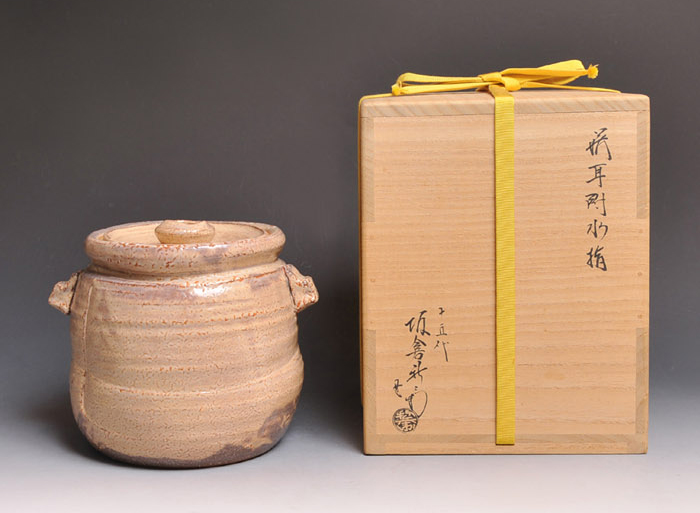 萩耳附水指
十五代
坂倉新兵衛